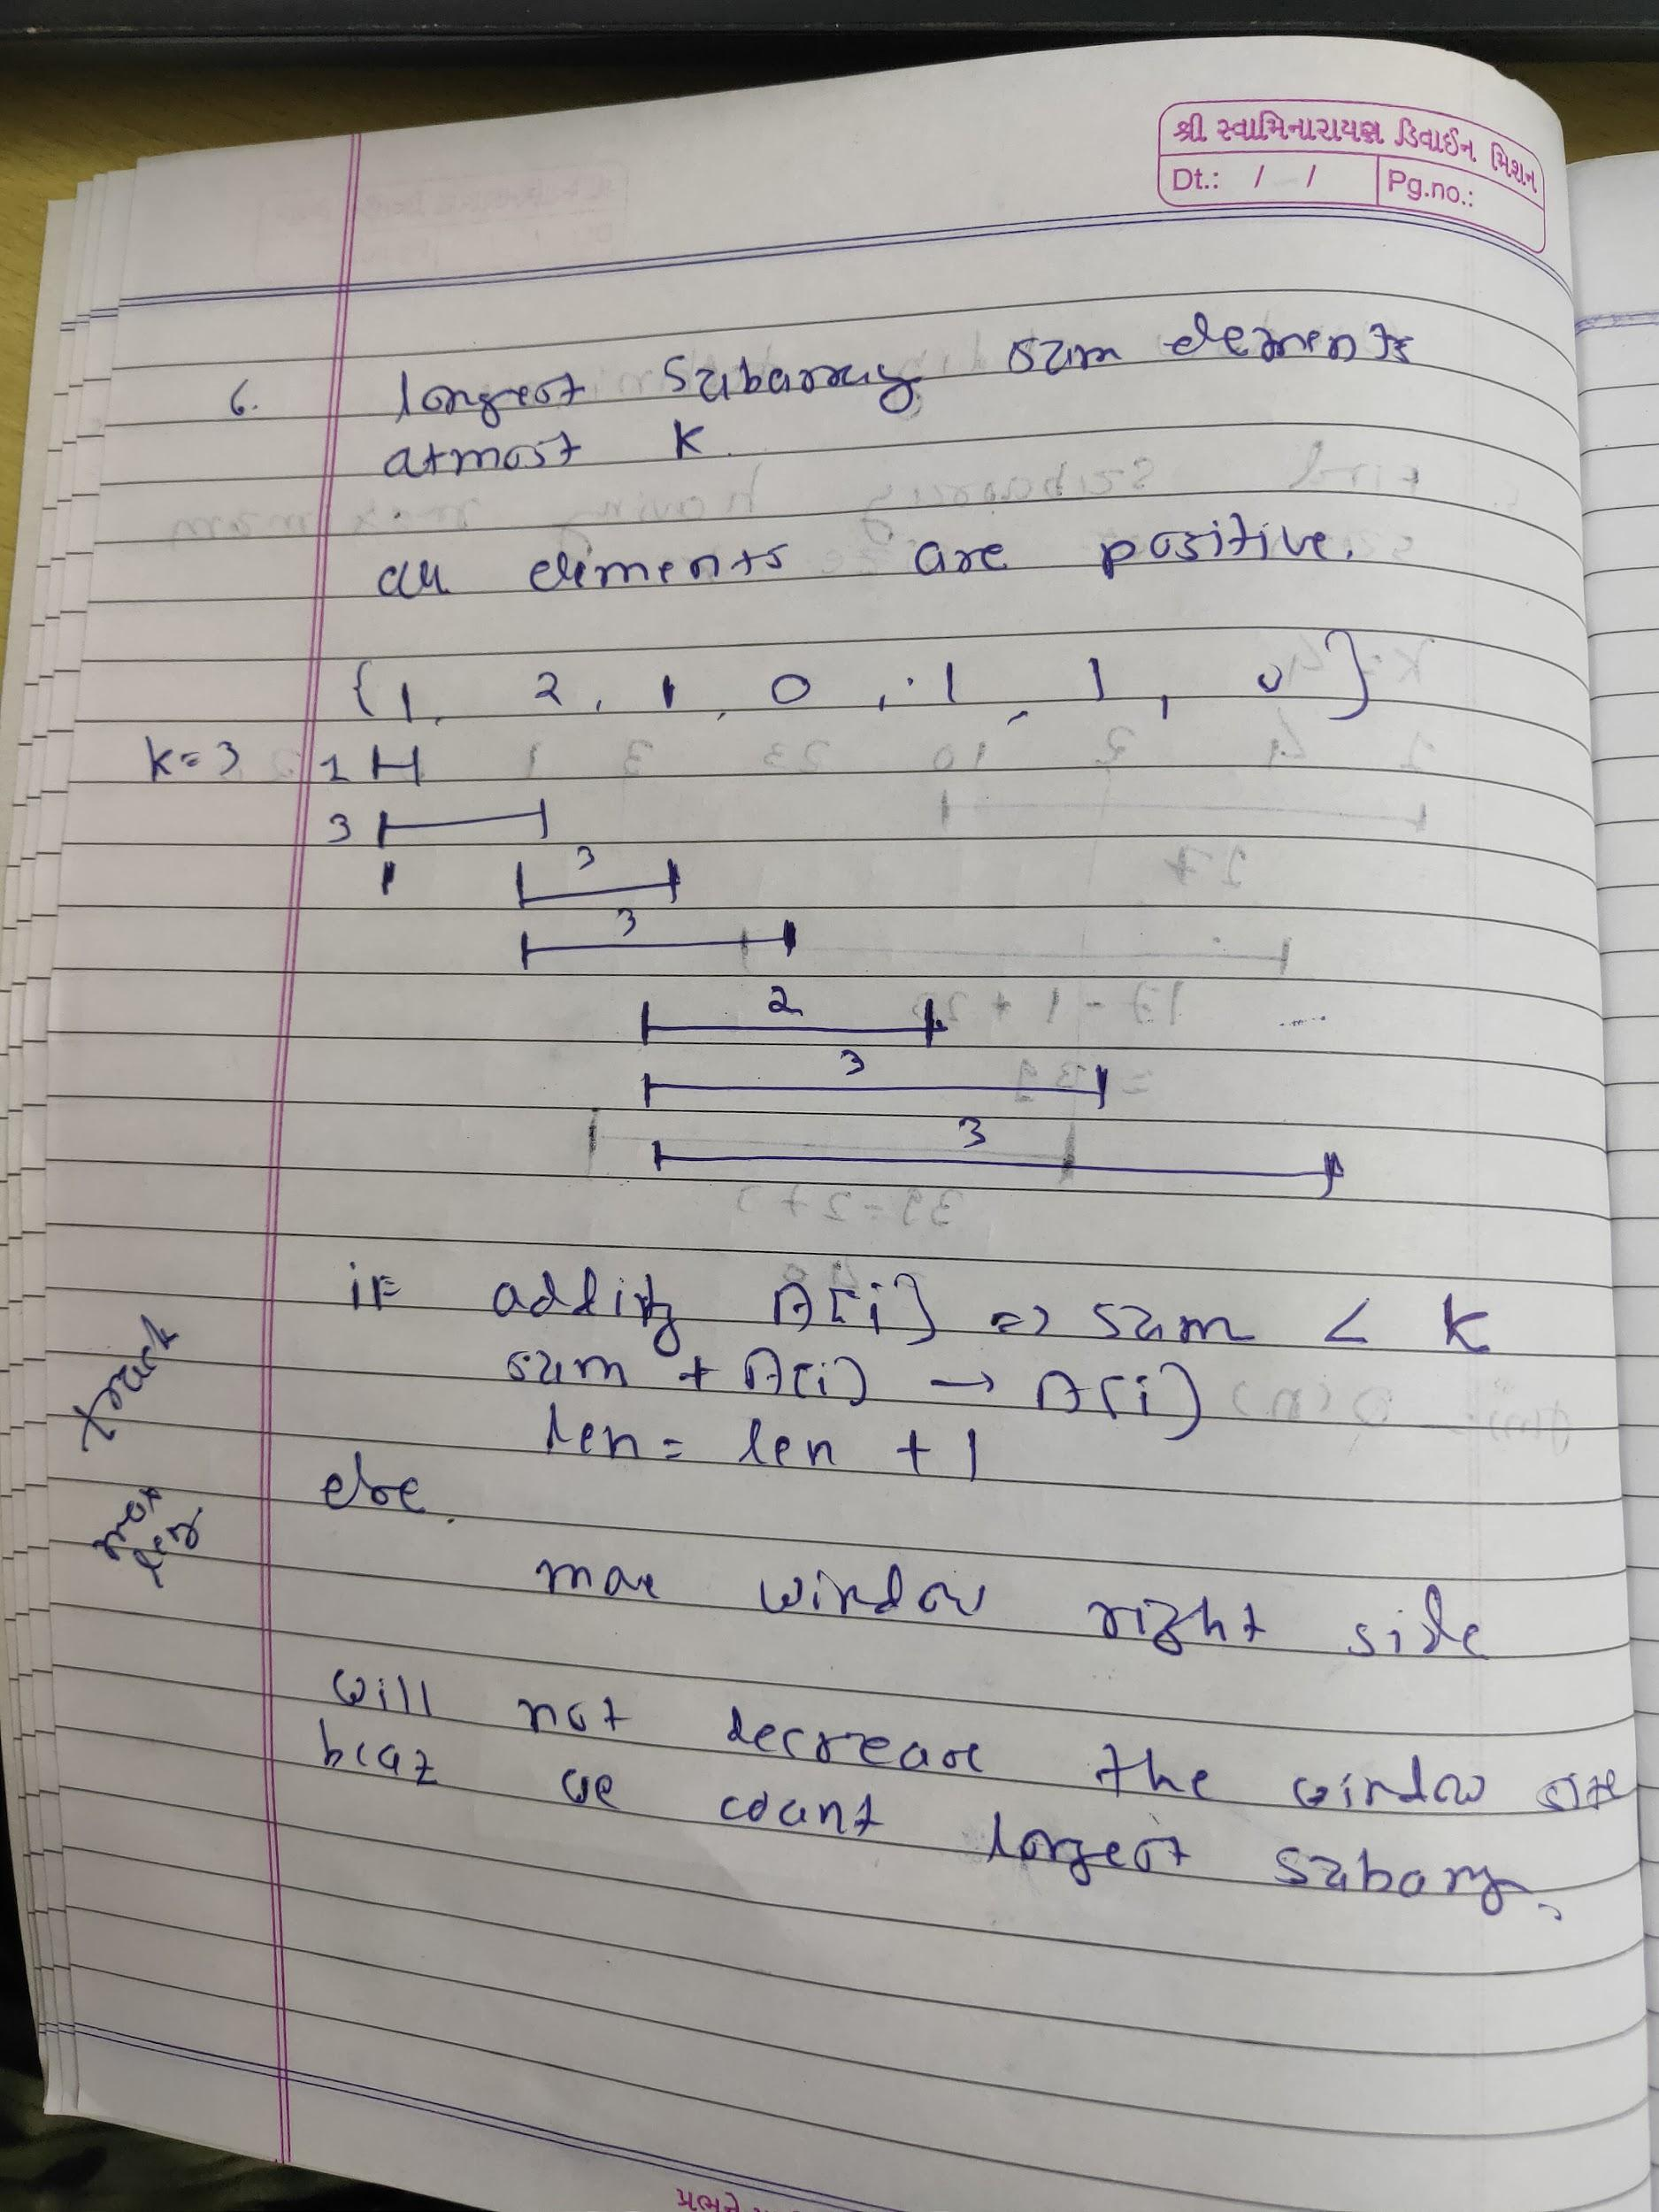 શ્રી સ્વામિનારાયણ ડિવાઈન મિશન
Dt.: / / Pg.no.:
6. longest subarray sum elements
atmost K.
all elements are positive.
{1, 2, 1, 0, 1, 1, 0}
k=3 1
3
3
3
2
3
3
if adding A[i] => sum < K
sum + A[i] → A[i]
len = len + 1
track
else.
move window right side
will not decrease the window size
bcaz we count longest subarray.